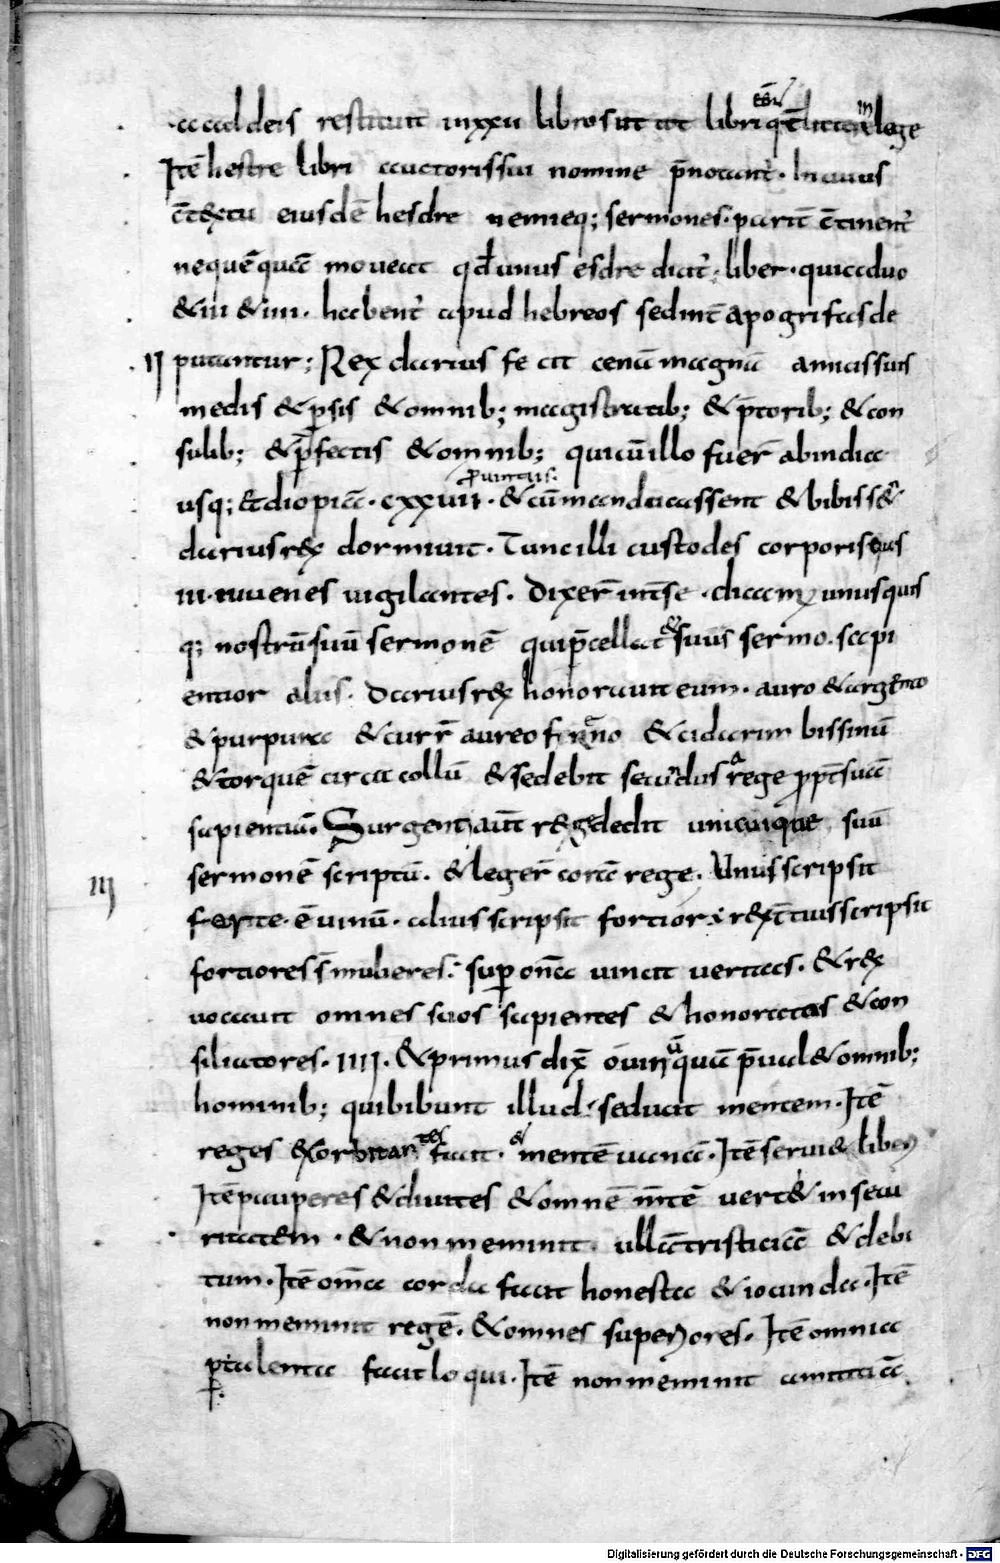 acaldeis restituit in xxii libros ut tot libri q̄t litt̄e lege
Itē hestre libri auctoris sui nomine p̄notant̄. In cuius
c̄textu eiusdē hesdre nemieq; sermones. parit̄ c̄tinent̄
ne quē quā moveat qđ unus esdre dicit̄. liber. quia duo
& iii & iiii. habent̄ apud hebreos sed int̄ apogrifas de
II putantur; Rex darius fecit cenā magnā amicis suis
medis & psis & omnib; magistratib; & p̄torib; & con
sulib; & p̄fectis & omnib; qui cū illo fuer̄ ab india
provintiis.
usq; & diopiā. cxxvii. & cū manducassent & bibiss&
darius rex dormivit. Tunc illi custodes corporis eius
iii. iuvenes vigilantes. dixer̄ int̄ se. dicam; unusquis
q; nostrū suū sermonē qui p̄cellat & suus sermo. sapi
entior aliis. Darius rex honoravit eum. auro & argento
& purpura & curr̄ aureo freno & cidarim bissinū
& torquē circa collū & sedebit secundus a rege ppt̄ suā
sapientiā. Surgent; aut̄ rege dedit unicuique suū
sermonē scriptū. & leger̄ corā rege. Unus scripsit
III forte. ē vinū. alius scripsit fortior. ē rex t̄tius scripsit
fortiores s̄ mulieres. sup om̄a vincit veritas. & rex
vocavit omnes suos sapientes & honoratos & con
siliatores. IIII. & primus dix̄ o viri quā p̄val& omnib;
hominib; qui bibunt illud. seducit mentem. Itē
reges exorbitantes facit. & mentē vanā. Itē servi & liberi
Itē pauperes & divites & omnē m̄tē vert& in secu
ritatem. & non meminit. ullā tristiciā & debi
tum. Itē om̄a corda facit honesta & iocunda. Itē
non meminit regē. & omnes superiores. Itē omnia
p talenta facit loqui. Itē non meminit amiticiā.
Digitalisierung gefördert durch die Deutsche Forschungsgemeinschaft - DFG